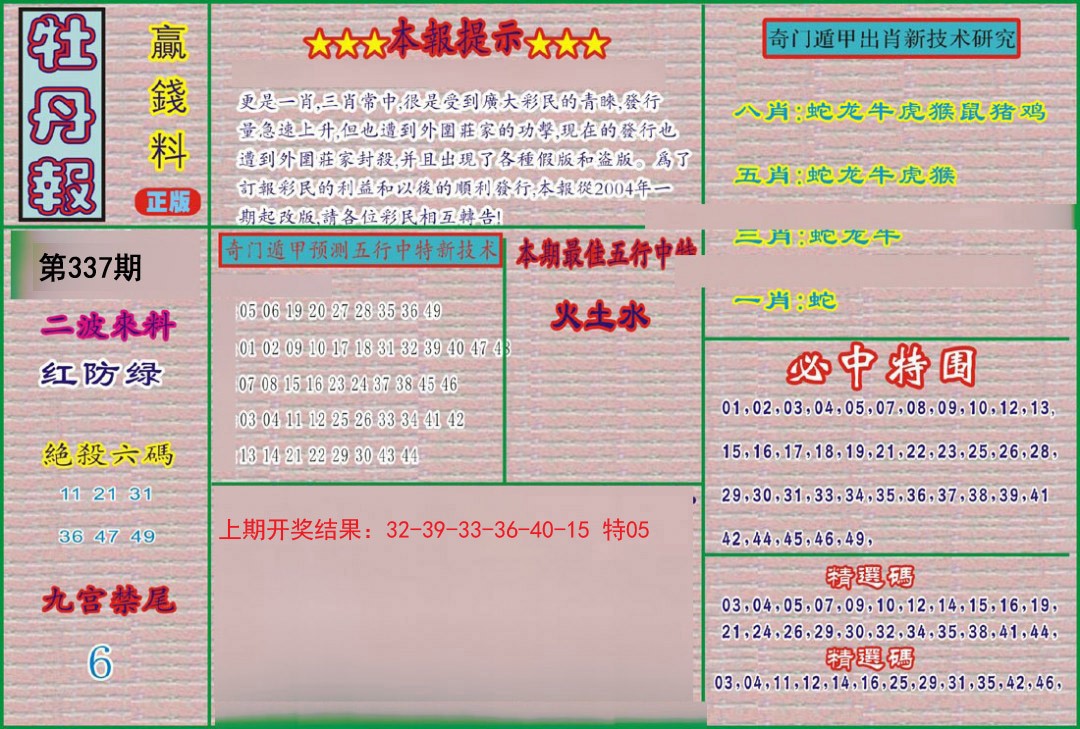 牡丹報
贏錢料
正版
★★★本報提示★★★
更是一肖,三肖常中,很是受到廣大彩民的青睞,發行
量急速上升,但也遭到外圍莊家的功擊,現在的發行也
遭到外圍莊家封殺,并且出現了各種假版和盗版。爲了
訂報彩民的利益和以後的順利發行,本報從2004年一
期起改版,請各位彩民相互轉告!
奇门遁甲出肖新技术研究
八肖:蛇龙牛虎猴鼠猪鸡
五肖:蛇龙牛虎猴
三肖:蛇龙牛
一肖:蛇
第337期
二波來料
红防绿
絕殺六碼
11 21 31
36 47 49
九宫禁尾
6
奇门遁甲预测五行中特新技术
05 06 19 20 27 28 35 36 49
01 02 09 10 17 18 31 32 39 40 47 48
07 08 15 16 23 24 37 38 45 46
03 04 11 12 25 26 33 34 41 42
13 14 21 22 29 30 43 44
本期最佳五行中特
火土水
上期开奖结果：32-39-33-36-40-15 特05
必中特围
01,02,03,04,05,07,08,09,10,12,13,
15,16,17,18,19,21,22,23,25,26,28,
29,30,31,33,34,35,36,37,38,39,41
42,44,45,46,49,
精選碼
03,04,05,07,09,10,12,14,15,16,19,
21,24,26,29,30,32,34,35,38,41,44,
精選碼
03,04,11,12,14,16,25,29,31,35,42,46,